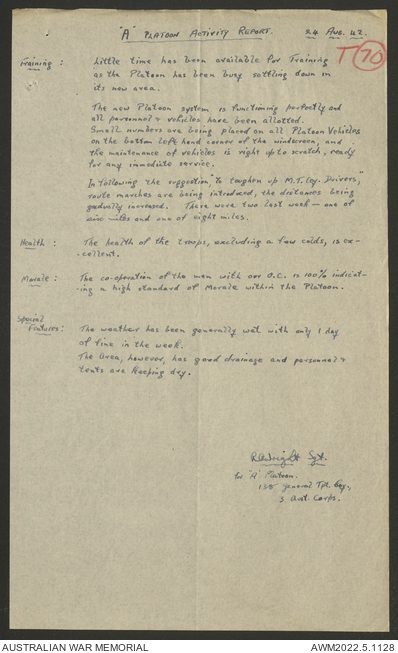 "A" PLATOON ACTIVITY REPORT. 24 AUG. 42.
T 70
Training : Little time has been available for Training
as the Platoon has been busy settling down in
its new area.
The new Platoon system is functioning perfectly and
all personnel & vehicles have been allotted.
Small numbers are being placed on all Platoon Vehicles
on the bottom left hand corner of the windscreen, and
the maintenance of vehicles is right up to scratch, ready
for any immediate service.
In following the suggestion "to toughen up M.T. Coy. Drivers,"
route marches are being introduced, the distances being
gradually increased. There were two last week — one of
six miles and one of eight miles.
Health : The health of the troops, excluding a few colds, is ex-
-cellent.
Morale : The co-operation of the men with our O.C. is 100% indicat-
-ing a high standard of Morale within the Platoon.
Special
Features : The weather has been generally wet with only 1 day
of fine in the week.
The Area, however, has good drainage and personnel &
tents are keeping dry.
Wright Sgt.
for "A" Platoon.
general Tpt. Coy.,
3 Aust. Corps.
AUSTRALIAN WAR MEMORIAL
AWM2022.5.1128